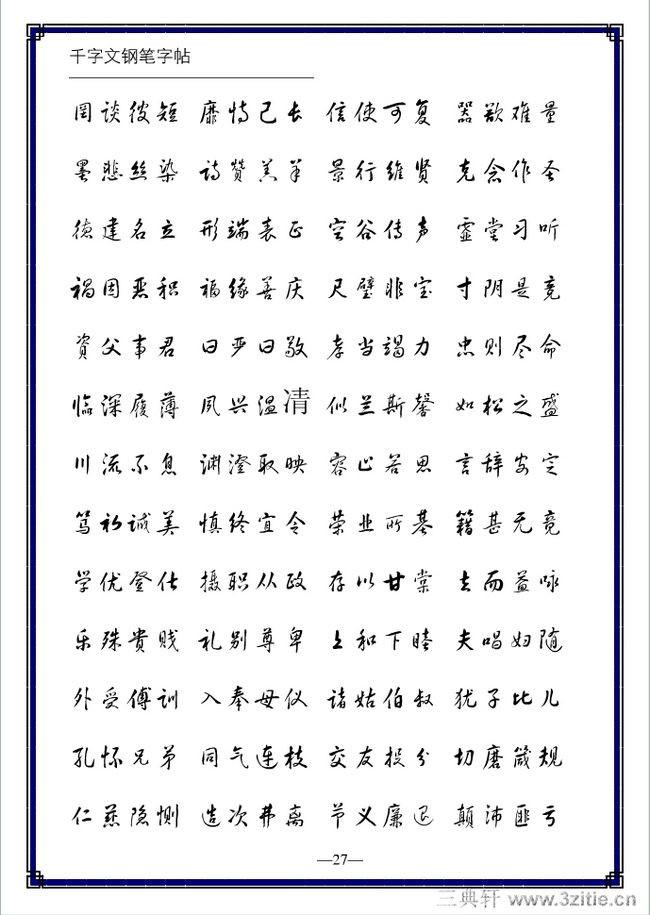 千字文钢笔字帖
罔谈彼短 靡恃己长 信使可复 器欲难量
墨悲丝染 诗赞羔羊 景行维贤 克念作圣
德建名立 形端表正 空谷传声 虚堂习听
祸因恶积 福缘善庆 尺璧非宝 寸阴是竞
资父事君 曰严曰敬 孝当竭力 忠则尽命
临深履薄 夙兴温凊 似兰斯馨 如松之盛
川流不息 渊澄取映 容止若思 言辞安定
笃初诚美 慎终宜令 荣业所基 籍甚无竟
学优登仕 摄职从政 存以甘棠 去而益咏
乐殊贵贱 礼别尊卑 上和下睦 夫唱妇随
外受傅训 入奉母仪 诸姑伯叔 犹子比儿
孔怀兄弟 同气连枝 交友投分 切磨箴规
仁慈隐恻 造次弗离 节义廉退 颠沛匪亏
—27—
三典轩 www.3zitie.cn